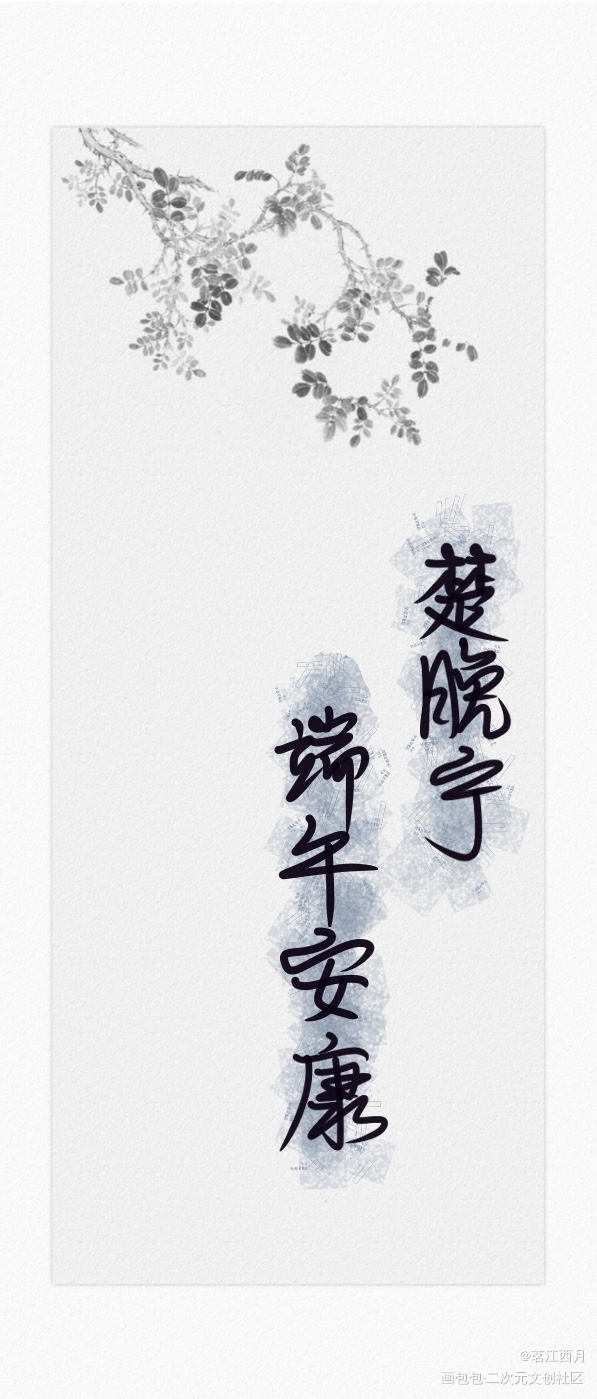 楚晚宁
端午安康
@茗江西月
画包包·二次元文创社区